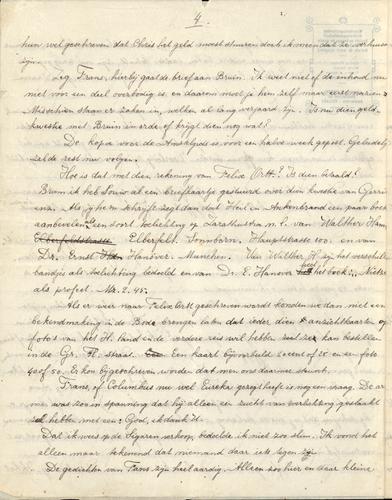 4
hun wel geschreven dat Chris het geld moest sturen doch ik meen dat ze verhuisd
zijn.
Zeg, Frans, hierbij gaat de brief aan Bruin. Ik weet niet of de inhoud nu
niet voor een deel overbodig is, en daarom moet je hem zelf maar eerst nazien.
Misschien staan er zaken in, welke al lang verjaard zijn. Is nu die geld-
kwestie met Bruin in orde of krijgt dien nog wat?
De kopa voor de Amstelgids is voor een halve week gepost. Geleidelijk
zal de rest nu volgen.
Hoe is dat met dien rekening van Felix Ortt? Is dien betaald?
Bruin ik heb Louis al een briefkaartje gestuurd over die kwestie van
Als jij hem schrijft zegt dan dat Heil in Ankenbrand een paar boeken
aanbevelen als een soort toelichting op Zarathustra n.l. van Walther
Elberfeld. Sonnborn, Hauptstrasse 100. en van
Dr. Ernst Hanover - Munchen. Van Walther H. zijn het verschillende
bandjes als toelichting bedoeld en van Dr. E. Hanover het boek: Nietzsche
als profet. Mk. 2.45.
Als er weer naar Felix Ortt geschreven wordt konden we dan niet een
bekendmaking in de Bode brengen laten dat ieder dien ansichtkaarten of
foto's van het H. land en de verdere reis wil hebben deze kan bestellen
in de Gr. H. straat. Een kaart bijvoorbeeld 20 cent of 25 en een foto
40 of 50. Er kon bijgeschreven worden dat men ons daarmee steunt.
Frans, of Columbus nu wel Eureka gezegd heeft is nog een vraag. De arme
man was zoo in spanning dat hij alleen een zucht van verlichting geslaakt
zal hebben met een: God, ik dank U.
Dat ik wees op de Sigaren verkoop, bedoelde ik niet zoo slim. Ik vond het
alleen maar bekend dat niemand daar iets tegen zij.
De gedichten van Frans zijn heel aardig. Alleen zoo hier en daar kleine